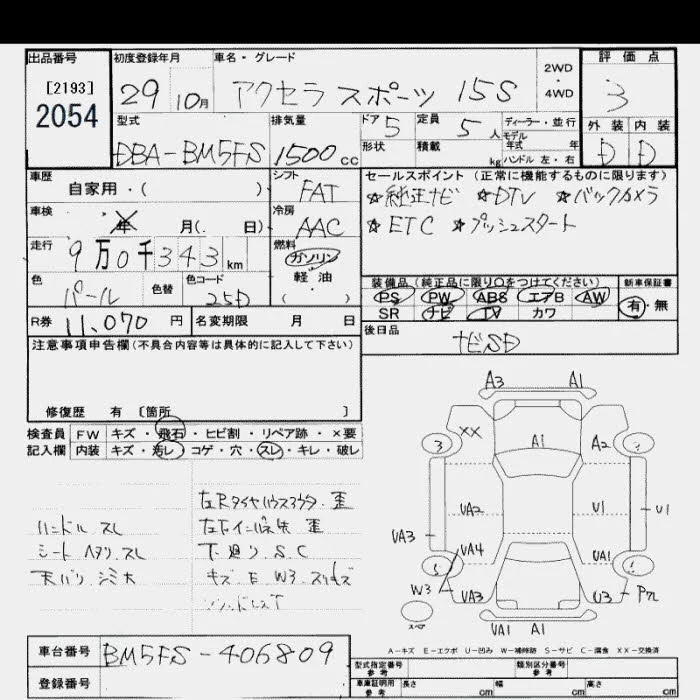 出品番号 初度登録年月 車名・グレード 2WD・4WD 評価点
[2193] 2054 29 10月 アクセラ スポーツ 15S 3
型式 排気量 ドア 5 定員 5人 ディーラー・並行 外装 内装
DBA-BM5FS 1500cc 形状 積載 kg モデル年式 年 ハンドル 左・右 D D
車歴 自家用・( ) シフト FAT セールスポイント(正常に機能するものに限ります)
☆純正ナビ ☆DTV ☆バックカメラ
車検 年 月(. 日) 冷房 AAC ☆ETC ☆プッシュスタート
走行 9万0千343km 燃料 ガソリン 軽油 ( )
色 パール 色替 色コード 25D
装備品(純正品に限り○をつけてください) 新車保証書
PS PW ABS エアB AW 有・無
SR ナビ TV カワ
R券 11,070円 名変期限 月 日 後日品 ナビSD
注意事項申告欄(不具合内容等は具体的に記入して下さい)
修復歴 有 [箇所 ]
検査員 FW キズ・飛石・ヒビ割・リペア跡・×要
記入欄 内装 キズ・汚レ・コゲ・穴・スレ・キレ・破レ
ハンドル スレ
シート ヘタリ.スレ
天バリ シミ大
左Rタイヤハウスアウタ 歪
歪
下廻り S.C
キズ E W3 スリキズ
A3 A1
3 XX A1 A2
UA2 U1 U1
UA3 UA4 UA1
W3 UA3 U3
スペア UA1 A1
A-キズ E-エクボ U-凹み W-補修跡 S-サビ C-腐食 XX-交換済
車台番号 BM5FS-406809
登録番号
型式指定番号 参考 類別区分番号 参考
車庫証明用 参考 長さ cm 幅 cm 高さ cm